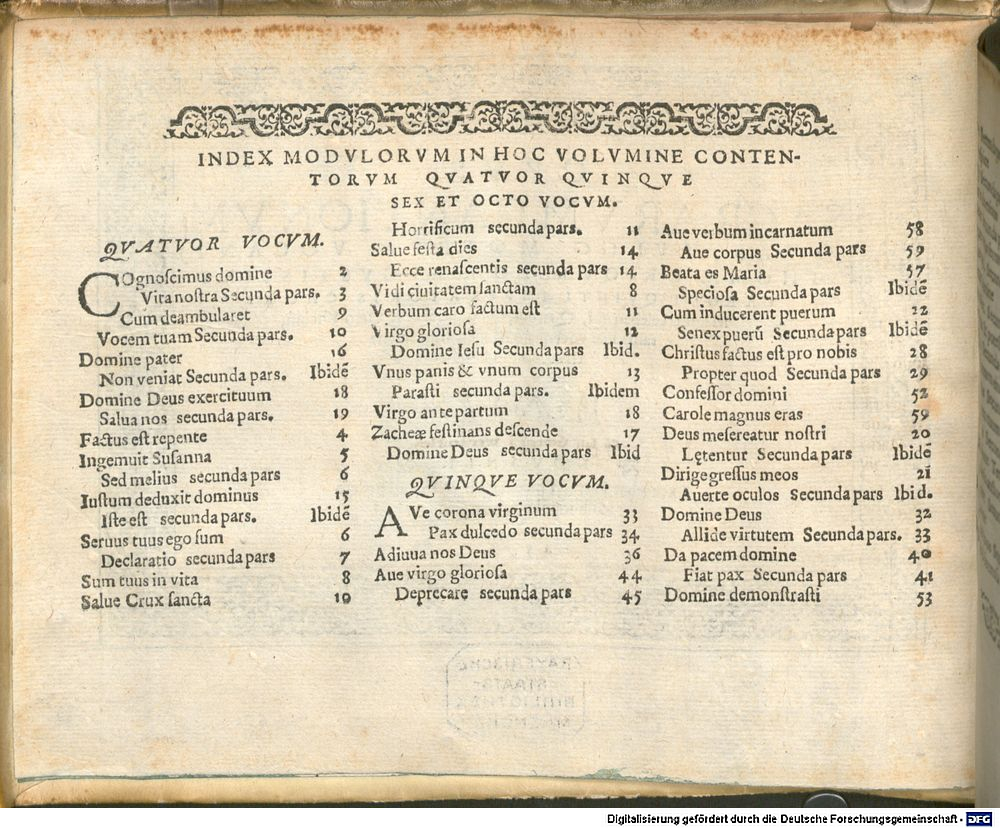 INDEX MODVLORVM IN HOC VOLVMINE CONTEN-
TORVM QVATVOR QVINQVE
SEX ET OCTO VOCVM.
QVATVOR VOCVM.
COgnoſcimus domine 2
Vita noſtra Secunda pars. 3
Cum deambularet 9
Vocem tuam Secunda pars. 10
Domine pater 16
Non veniat Secunda pars. Ibidē
Domine Deus exercituum 18
Salua nos secunda pars. 19
Factus eſt repente 4
Ingemuit Suſanna 5
Sed melius secunda pars 6
Iuſtum deduxit dominus 15
Iſte eſt secunda pars. Ibidē
Seruus tuus ego ſum 6
Declaratio secunda pars 7
Sum tuus in vita 8
Salue Crux ſancta 10
Horrificum secunda pars. 11
Salue feſta dies 14
Ecce renaſcentis secunda pars 14
Vidi ciuitatem ſanctam 8
Verbum caro factum eſt 11
Virgo glorioſa 12
Domine Ieſu Secunda pars Ibid.
Vnus panis & vnum corpus 13
Paraſti secunda pars. Ibidem
Virgo ante partum 18
Zacheæ feſtinans deſcende 17
Domine Deus secunda pars Ibid
QVINQVE VOCVM.
AVe corona virginum 33
Pax dulcedo secunda pars 34
Adiuua nos Deus 36
Aue virgo glorioſa 44
Deprecare secunda pars 45
Aue verbum incarnatum 58
Aue corpus Secunda pars 59
Beata es Maria 57
Specioſa Secunda pars Ibidē
Cum inducerent puerum 22
Senex puerū Secunda pars Ibidē
Chriſtus factus eſt pro nobis 28
Propter quod Secunda pars 29
Confeſſor domini 52
Carole magnus eras 59
Deus meſereatur noſtri 20
Lętentur Secunda pars Ibidē
Dirige greſſus meos 21
Auerte oculos Secunda pars Ibid.
Domine Deus 32
Allide virtutem Secunda pars. 33
Da pacem domine 40
Fiat pax Secunda pars 41
Domine demonſtraſti 53
Digitalisierung gefördert durch die Deutsche Forschungsgemeinschaft - DFG